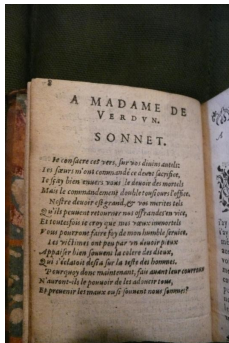 A MADAME DE
VERDVN.
SONNET.
Ie consacre ces vers, sur vos divins autels:
Les sœurs m'ont commandé ce devot sacrifice,
Ie sçay bien envers vous le devoir des mortels
Mais le commandement double tousiours l'office.
Nostre devoir est grand, & vos merites tels
Qu'ils peuvent retourner nos offrandes en vice,
Et toutesfois ie croy que ces vœux immortels
Vous pourront faire foy de mon humble service.
Les victimes ont peu par un devoir pieux
Appaiser bien souvent la colere des dieux,
Qui s'éclatoit desia sur la teste des hommes.
Pourquoy donc maintenant, fait avant leur courroux
N'auront-ils le pouvoir de les adoucir tous,
Et prevenir les maux ou si souvent nous sommes?